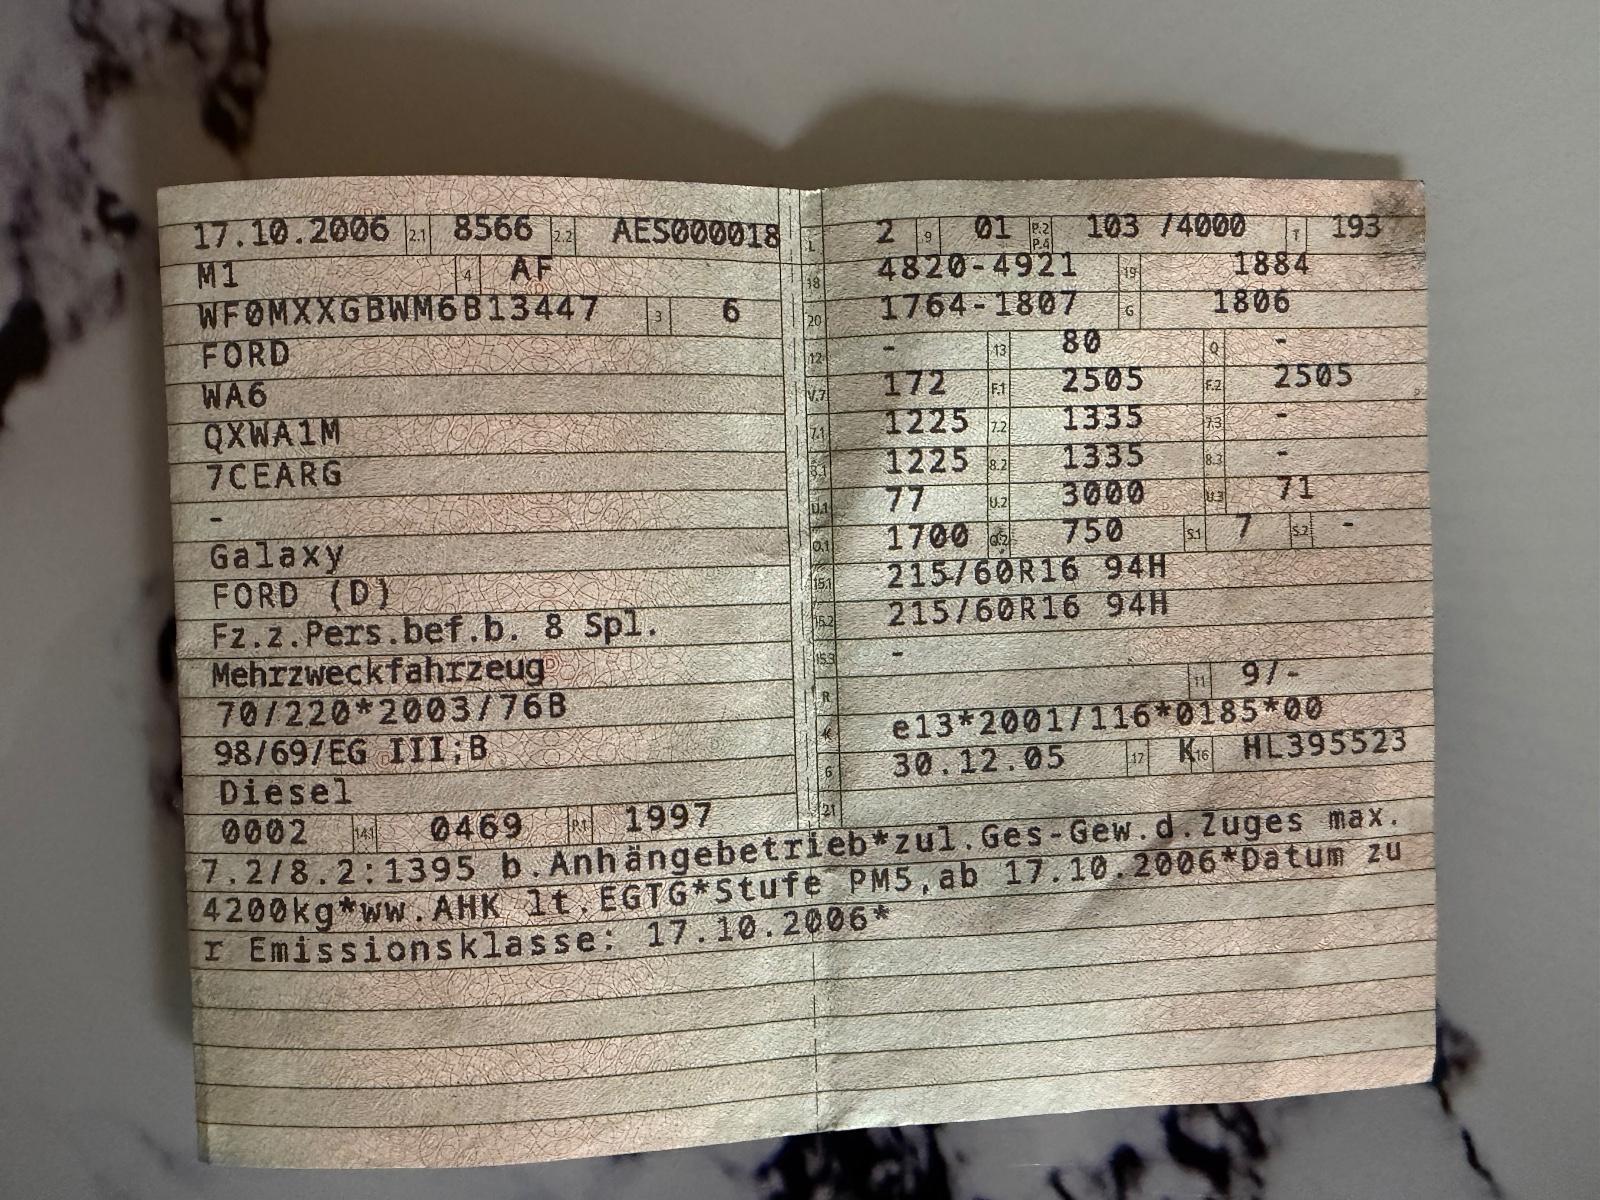 17.10.2006 2.1 8566 2.2 AES000018
M1 4 AF
WF0MXXGBWM6B13447 3 6
FORD
WA6
QXWA1M
7CEARG
-
Galaxy
FORD (D)
Fz.z.Pers.bef.b. 8 Spl.
Mehrzweckfahrzeug
70/220*2003/76B
98/69/EG III;B
Diesel
0002 14.1 0469 P.1 1997
L 2 9 01 P.2 P.4 103 /4000 T 193
18 4820-4921 19 1884
20 1764-1807 G 1806
12 - 13 80 Q -
V.7 172 F.1 2505 F.2 2505
7.1 1225 7.2 1335 7.3 -
8.1 1225 8.2 1335 8.3 -
U.1 77 U.2 3000 U.3 71
O.1 1700 O.2 750 S.1 7 S.2 -
15.1 215/60R16 94H
15.2 215/60R16 94H
15.3 -
R 11 9/-
K e13*2001/116*0185*00
6 30.12.05 17 K 16 HL395523
21
7.2/8.2:1395 b.Anhängebetrieb*zul.Ges-Gew.d.Zuges max.
4200kg*ww.AHK lt.EGTG*Stufe PM5,ab 17.10.2006*Datum zu
r Emissionsklasse: 17.10.2006*